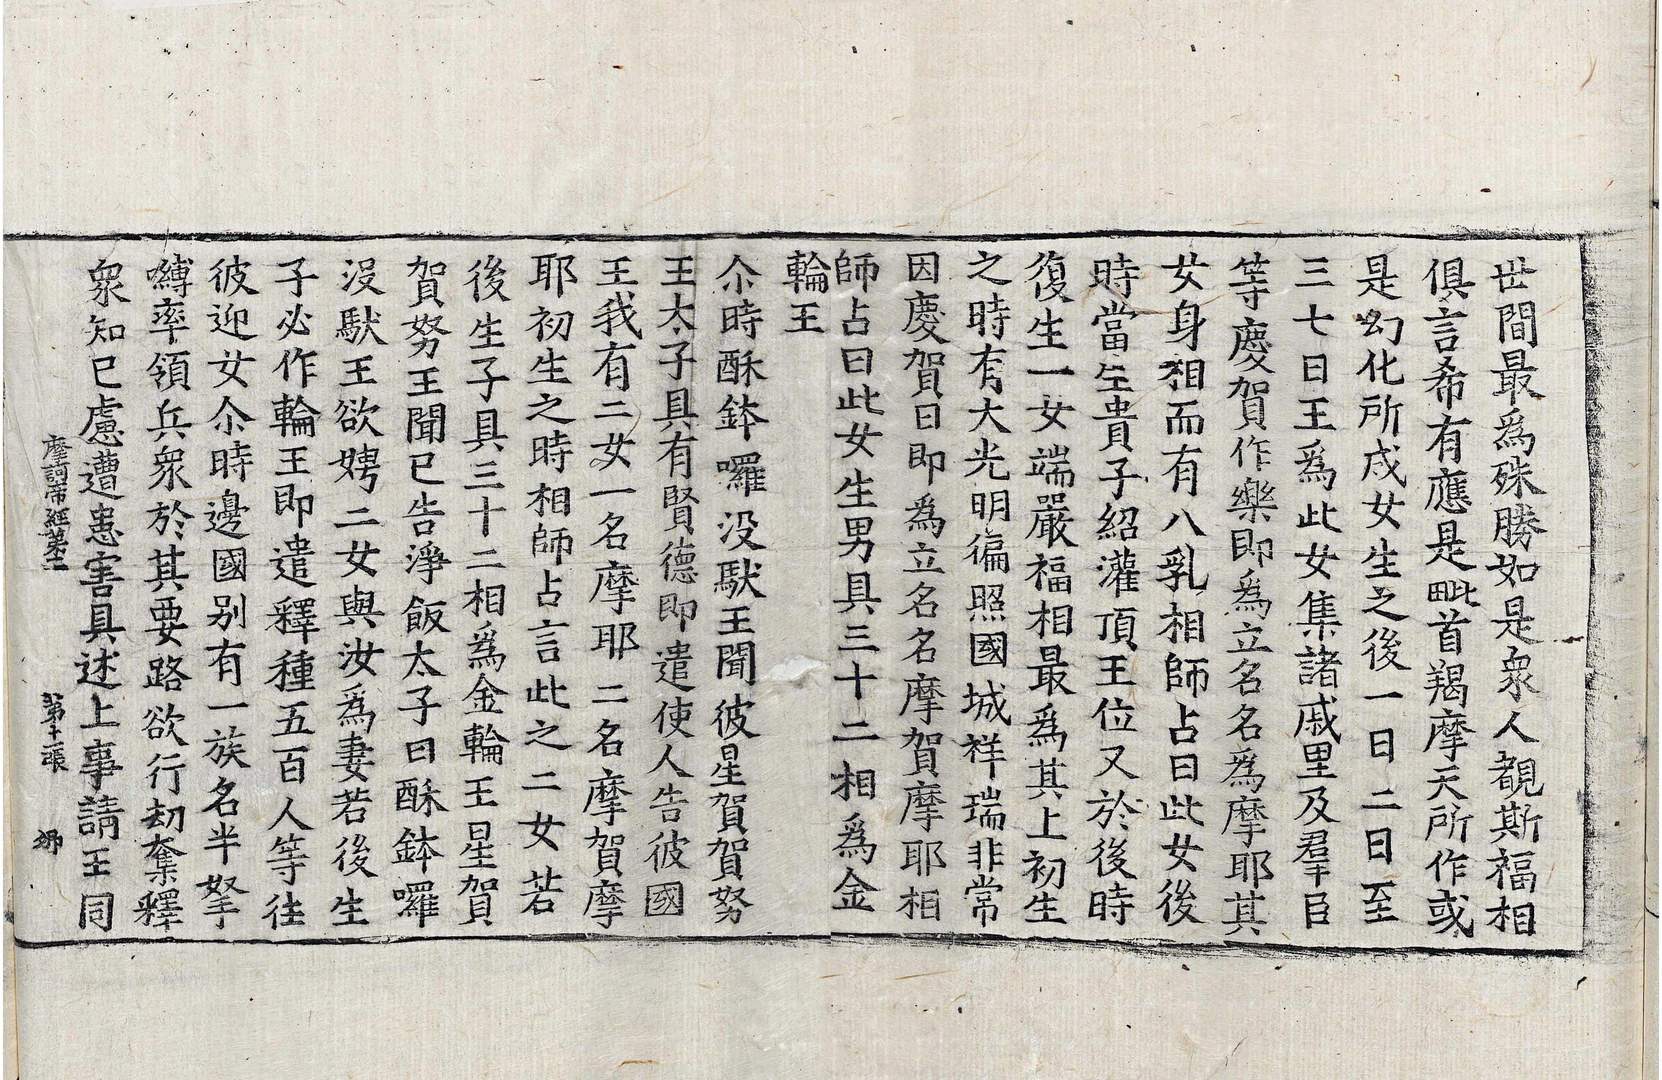 世間最爲殊勝如是衆人覩斯福相
俱言希有應是毗首羯摩天所作或
是幻化所成女生之後一日二日至
三七日王爲此女集諸戚里及羣臣
等慶賀作樂即爲立名名爲摩耶其
女身相而有八乳相師占曰此女後
時當生貴子紹灌頂王位又於後時
復生一女端嚴福相最爲其上初生
之時有大光明徧照國城祥瑞非常
因慶賀日即爲立名名摩賀摩耶相
師占曰此女生男具三十二相爲金
輪王
尒時酥鉢囉没馱王聞彼星賀賀努
王太子具有賢德即遣使人告彼國
王我有二女一名摩耶二名摩賀摩
耶初生之時相師占言此之二女若
後生子具三十二相爲金輪王星賀
賀努王聞已告淨飯太子曰酥鉢囉
没馱王欲娉二女與汝爲妻若後生
子必作輪王即遣釋種五百人等往
彼迎女尒時邊國别有一族名半拏
嚩率領兵衆於其要路欲行劫奪釋
衆知已慮遭患害具述上事請王同
摩訶帝經第二 第十二張 㴠